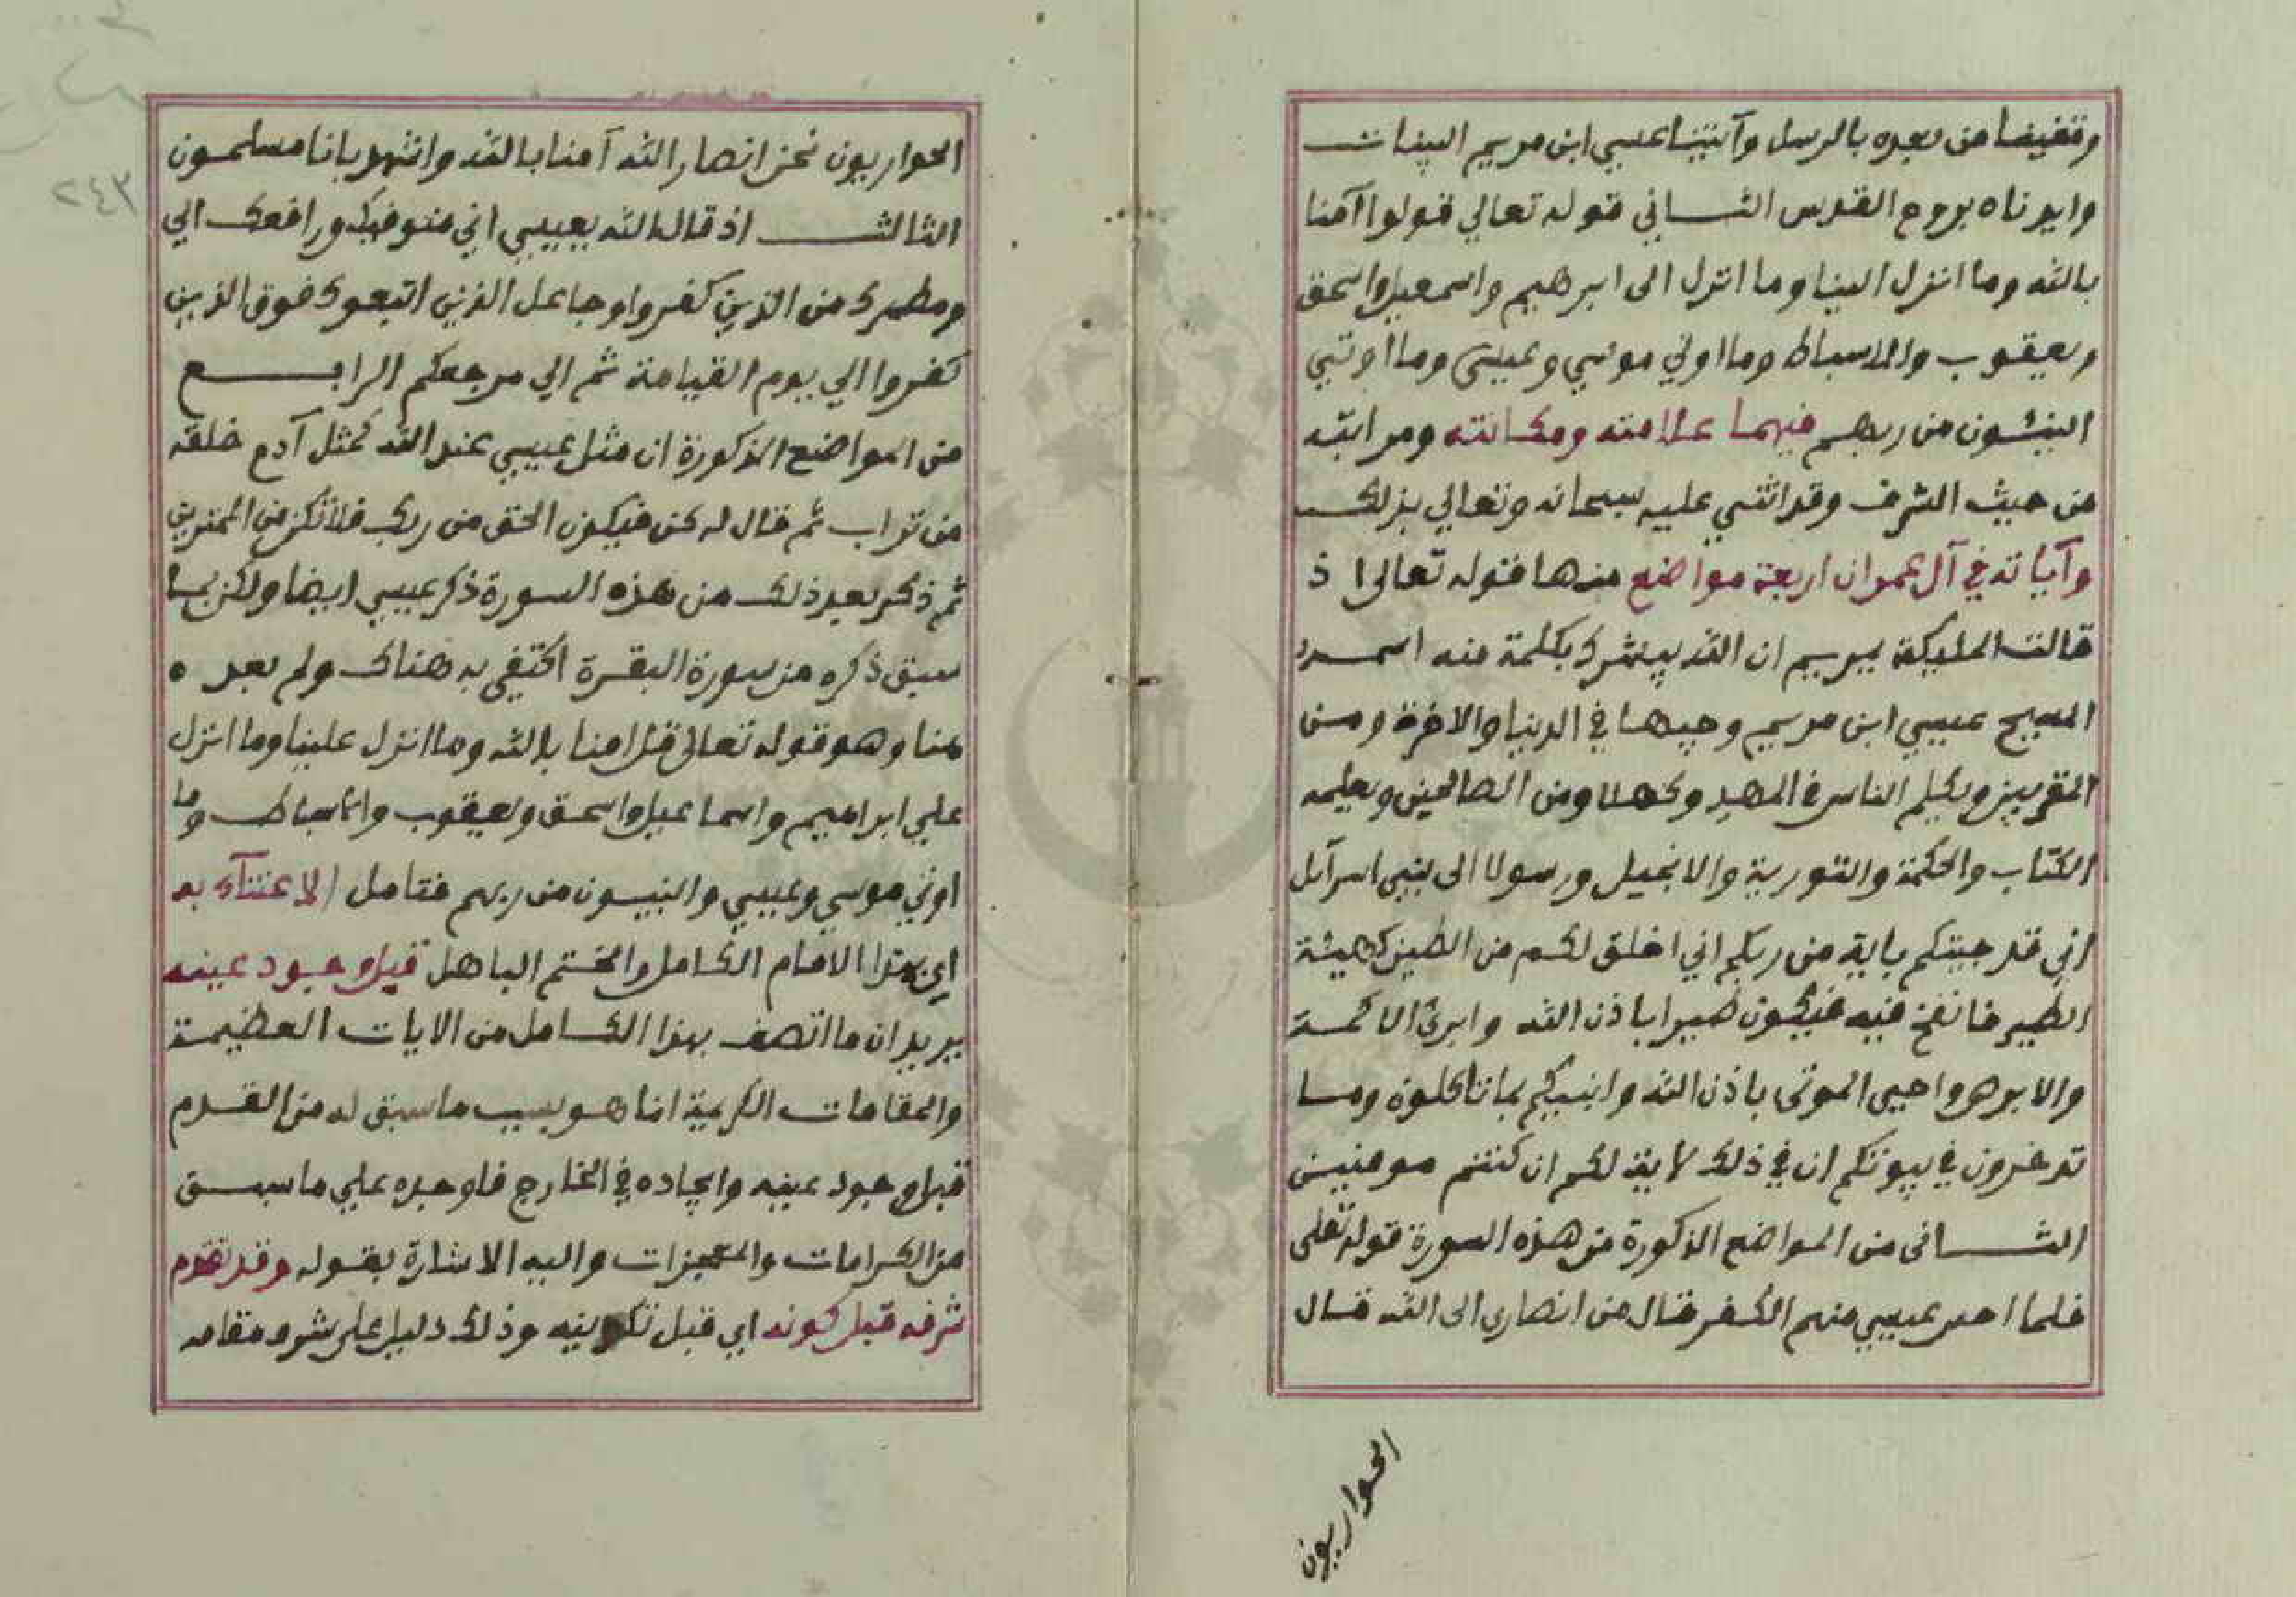 وقفينا من بعده بالرسل وآتينا عيسي ابن مريم البينات
وايدناه بروح القدس الثاني قوله تعالي قولوا آمنا
بالله وما انزل الينا وما انزل الى ابرهيم واسمعيل واسحق
ويعقوب والاسباط وما اوتي موسي وعيسى وما اوتي
النبيئون من ربهم فيهما علامته ومكانته ومرابته
من حيث الشرف وقد اثنى عليه سبحانه وتعالي بذلك
وآياته في آل عمران اربعة مواضع منها قوله تعالى اذ
قالت المليكة يمريم ان الله يبشرك بكلمة منه اسمه
المسيح عيسي ابن مريم وجيها في الدنيا والاخرة ومن
المقربين ويكلم الناس في المهد وكهلا ومن الصالحين ويعلمه
الكتاب والحكمة والتورية والانجيل ورسولا الى بني اسرآيل
اني قد جيتكم باية من ربكم اني اخلق لكم من الطين كهيئة
الطير فانفخ فيه فيكون طيرا باذن الله وابرئ الاكمه
والابرص واحيى الموتى باذن الله وانبيكم بما تاكلون وما
تدخرون في بيوتكم ان في ذلك لاية لكم ان كنتم مومنين
الثاني من المواضع الذكورة من هذه السورة قوله تعلى
فلما احس عيسي منهم الكفر قال من انصاري الى الله قال
الحواريون
٢٤٣
الحواريون نحن انصار الله آمنا بالله واشهد بانا مسلمون
الثالث اذ قال الله يعيسي اني متوفيك ورافعك الي
ومطهرك من الذين كفروا وجاعل الذين اتبعوك فوق الذين
كفروا الي يوم القيامة ثم الي مرجعكم الرابع
من المواضع الذكورة ان مثل عيسي عند الله كمثل آدم خلقه
من تراب ثم قال له كن فيكون الحق من ربك فلا تكن من الممترين
ثم ذكر بعد ذلك من هذه السورة ذكر عيسي ايضا ولكن بما
سبق ذكره من سورة البقرة اكتفي به هناك ولم يعده
هنا وهو قوله تعالى قل امنا بالله وما انزل علينا وما انزل
علي ابراهيم واسماعيل واسحق ويعقوب والاسباط وما
اوتي موسي وعيسي والنبيون من ربهم فتامل الاعتنآء به
اي بهذا الامام الكامل والختم الباهل قبل وجود عينه
يريد ان ما اتصف بهذا الكامل من الايات العظيمة
والمقامات الكريمة انما هو بسبب ما سبق له من القدم
قبل وجود عينه وايجاده في الخارج فاوجده علي ما سبق
من الكرامات والمعجزات واليه الاشارة بقوله وقد تقدم
شرفه قبل كونه اي قبل تكوينه وذلك دليل على شرف مقامه